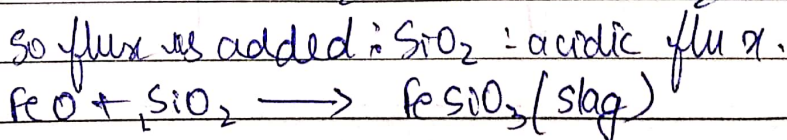 So flux is added : SiO₂ : acidic flux.
FeO + SiO₂ ⟶ FeSiO₃ (slag)